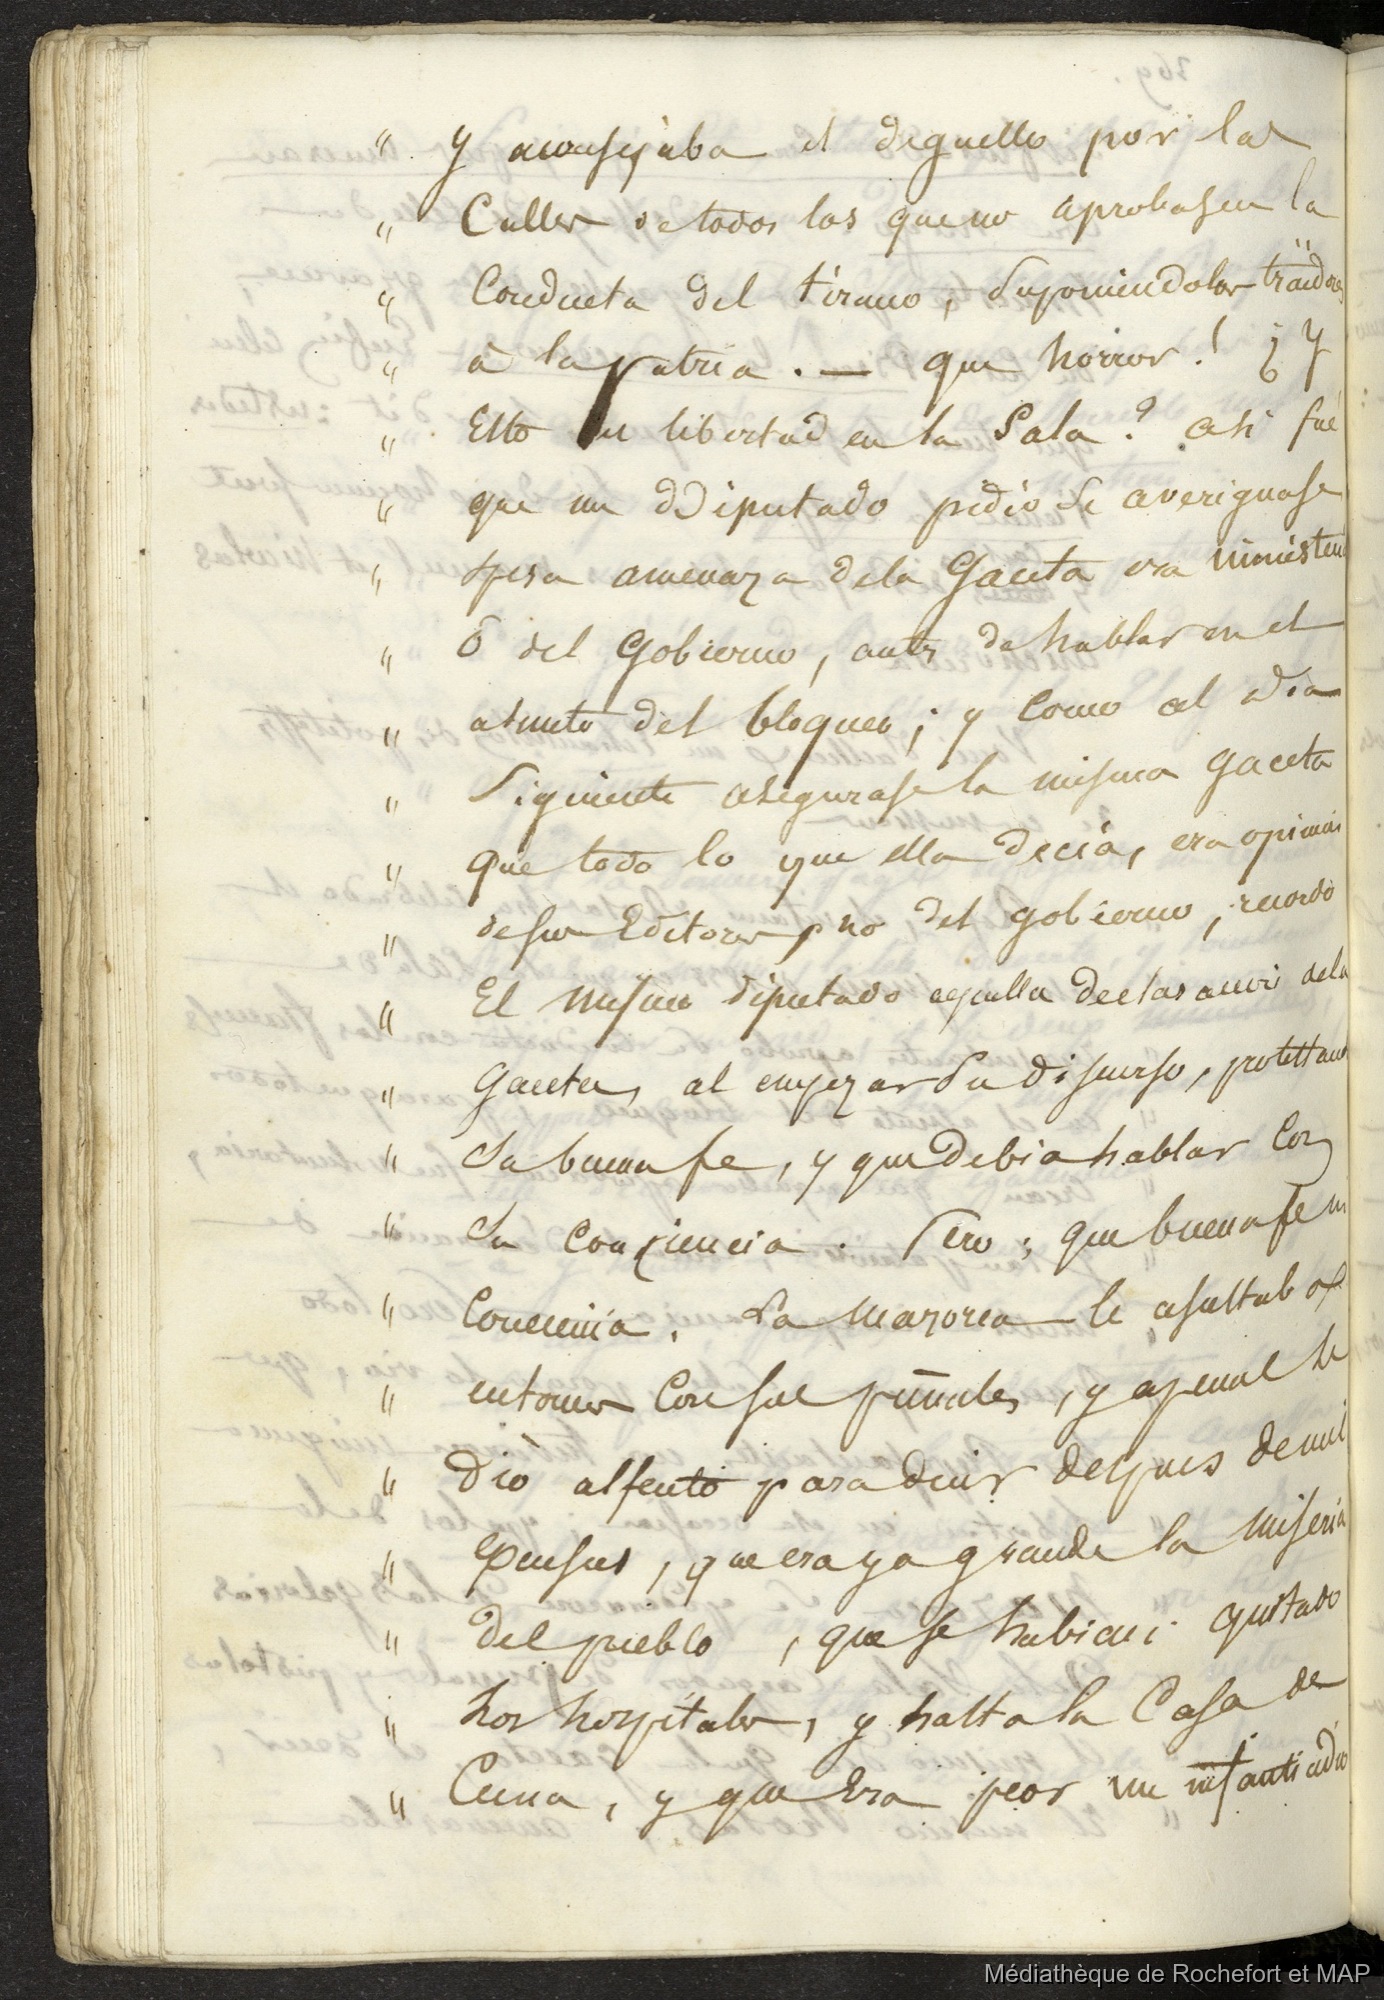 " y aconsejaba el deguello por las
" Calles de todos los que no aprobasen la
" Conducta del tirano, suponiendolos traidores
" à la patria. — que horror! ¿ Y
" Esto en libertad en la Sala? asi fué
" que un Diputado pidió se averiguase
" si esa amenaza dela Gaceta era ministerial
" ó del Gobierno, antes de hablar en el
" asunto del bloqueo; y como al dia
" Siguiente asegurase la misma Gaceta
" que todo lo que ella decia, era opinion
" de sus Editores y no del gobierno, recordó
" El mismo diputado aquella declaracion dela
" Gaceta, al empezar su discurso, protestando
" su buena fe, y que debia hablar con
" su conciencia. Pero ¡ que buena fe ni
" Conciencia. La mazorca le asaltaba
" entonces con sus puñales, y apenas le
" diò aliento para decir despues de mil
" que era ya grande la miseria
" del pueblo, que se habian quitado
" los hospitales, y hasta la Casa de
" Cuna, y que era peor un infanticidio
Médiathèque de Rochefort et MAP